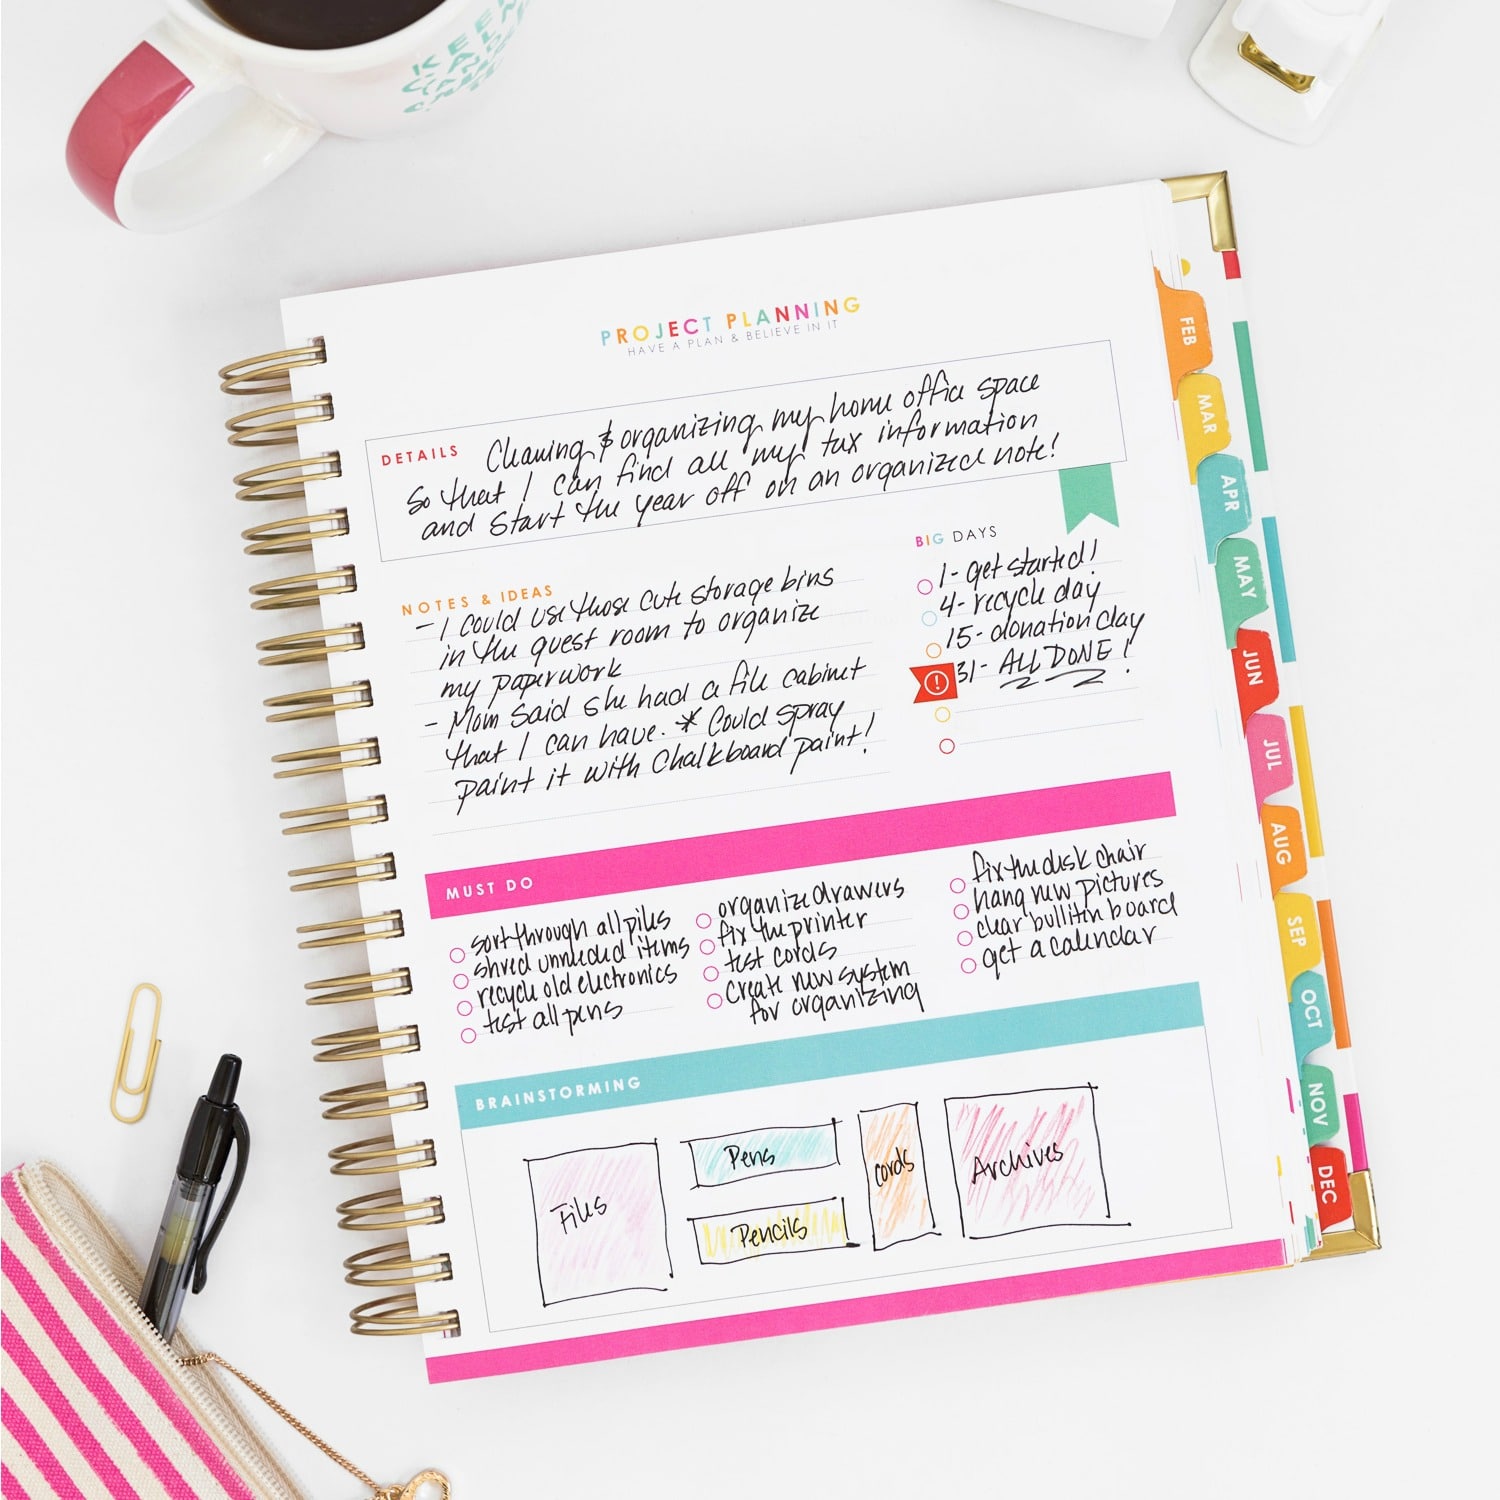 KEEP
CALM
AND
PROJECT PLANNING
HAVE A PLAN & BELIEVE IN IT
DETAILS Cleaning & organizing my home office space
so that I can find all my tax information
and start the year off on an organized note!
NOTES & IDEAS
- I could use those cute storage bins
in the guest room to organize
my paperwork
- Mom said she had a file cabinet
that I can have. * Could spray
paint it with chalkboard paint!
BIG DAYS
1- get started!
4- recycle day
15- donation day
31- ALL DONE!
MUST DO
sort through all piles
shred unneeded items
recycle old electronics
test all pens
organize drawers
fix the printer
test cords
Create new system
for organizing
fix the desk chair
hang new pictures
clear bulliten board
get a calendar
BRAINSTORMING
Files
Pens
Pencils
cords
Archives
FEB
MAR
APR
MAY
JUN
JUL
AUG
SEP
OCT
NOV
DEC